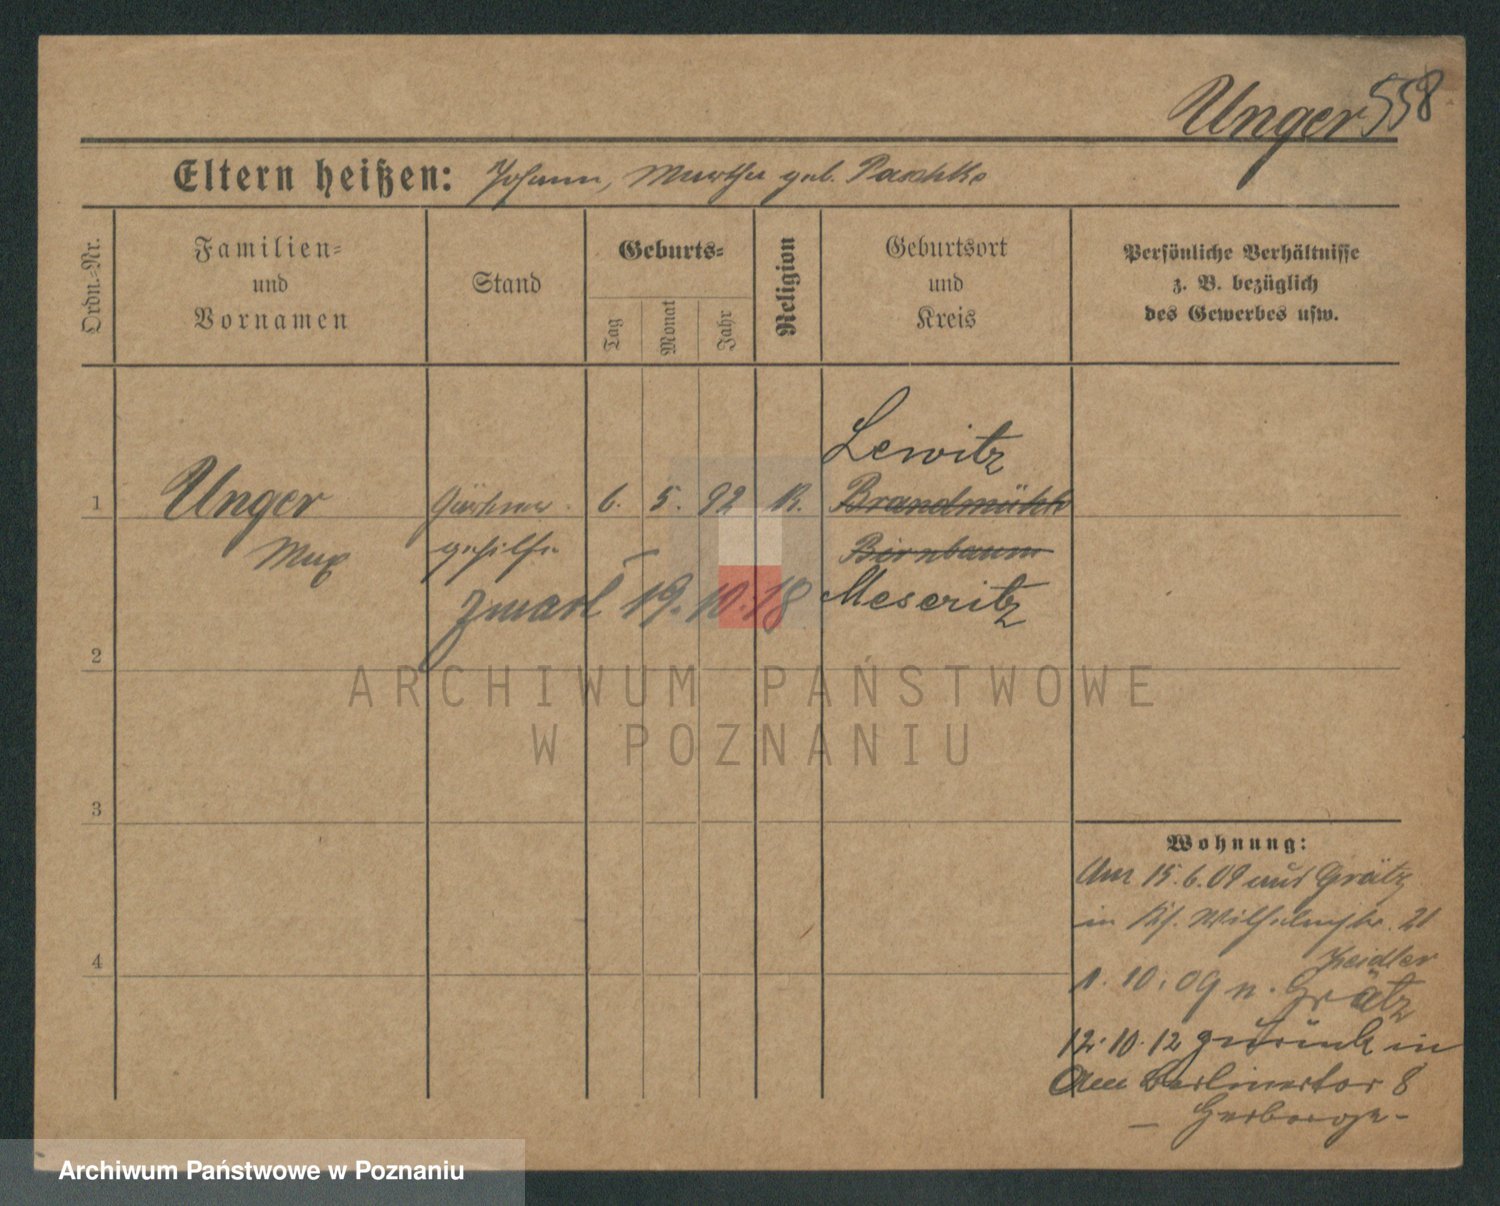 Unger 558
Eltern heißen: Johann, Martha geb. Paschke
Ordn.-Nr.
Familien-
und
Vornamen
Stand
Geburts-
Tag
Monat
Jahr
Religion
Geburtsort
und
Kreis
Persönliche Verhältnisse
z. B. bezüglich
des Gewerbes usw.
Lewitz
1 Unger Gärtner 6. 5. 92 K. Brandmühle
Max gehilfe Birnbaum
zmarł 19.10.18 Meseritz
2
ARCHIWUM PAŃSTWOWE
W POZNANIU
3
Wohnung:
Am 15.6.09 aus Grätz
in Wilhelmstr. 21
Zeidler
4
1.10.09 n. Grätz
12.10.12 zurück in
Am Berlinertor 8
Herberge
Archiwum Państwowe w Poznaniu